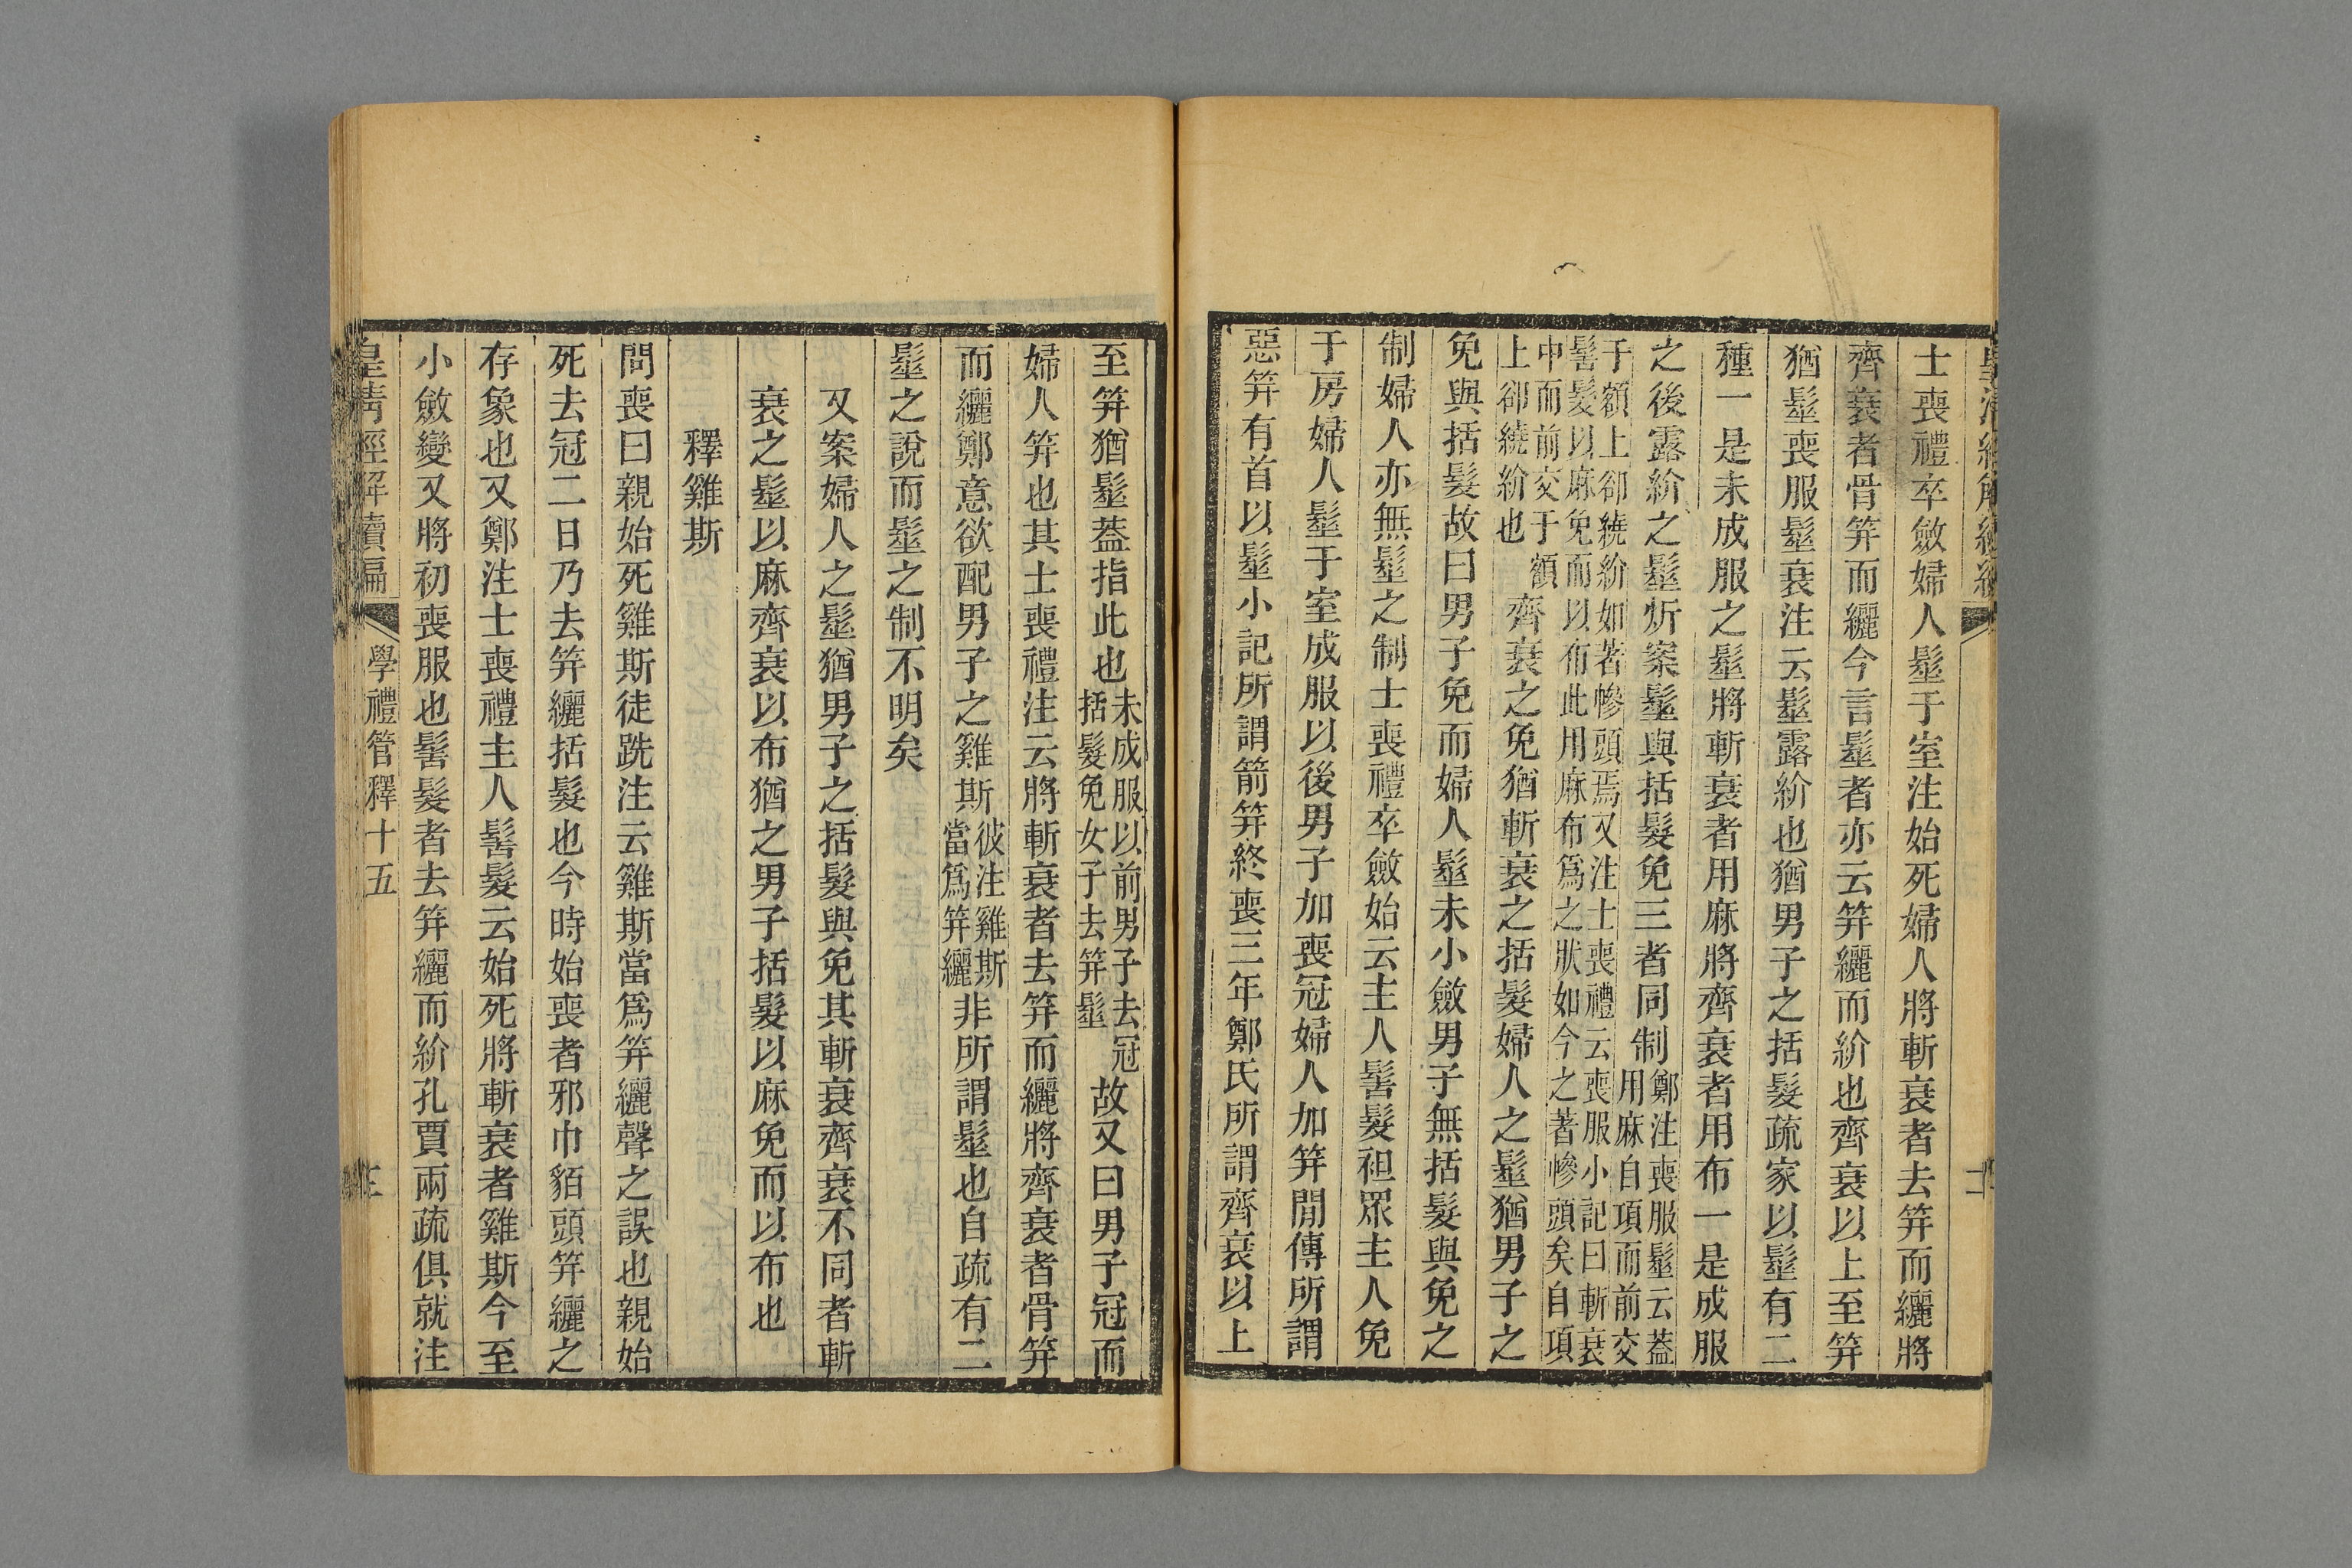 皇清經解續編
二
士喪禮卒斂婦人髽于室注始死婦人將斬衰者去筓而纚將
齊衰者骨筓而纚今言髽者亦云筓纚而紒也齊衰以上至筓
猶髽喪服髽衰注云髽露紒也猶男子之括髮疏家以髽有二
種一是未成服之髽將斬衰者用麻將齊衰者用布一是成服
之後露紒之髽炘案髽與括髮免三者同制鄭注喪服髽云蓋
用麻自項而前交
于額上卻繞紒如著幓頭焉又注士喪禮云喪服小記曰斬衰
髺髮以麻免而以布此用麻布爲之狀如今之著幓頭矣自項
中而前交于額
上卻繞紒也齊衰之免猶斬衰之括髮婦人之髽猶男子之
免與括髮故曰男子免而婦人髽未小斂男子無括髮與免之
制婦人亦無髽之制士喪禮卒斂始云主人髺髮袒眾主人免
于房婦人髽于室成服以後男子加喪冠婦人加筓閒傳所謂
惡筓有首以髽小記所謂箭筓終喪三年鄭氏所謂齊衰以上
至筓猶髽蓋指此也未成服以前男子去冠
括髮免女子去筓髽故又曰男子冠而
婦人筓也其士喪禮注云將斬衰者去筓而纚將齊衰者骨筓
而纚鄭意欲配男子之雞斯彼注雞斯
當爲筓纚非所謂髽也自疏有二
髽之說而髽之制不明矣
又案婦人之髽猶男子之括髮與免其斬衰齊衰不同者斬
衰之髽以麻齊衰以布猶之男子括髮以麻免而以布也
釋雞斯
問喪曰親始死雞斯徒跣注云雞斯當爲筓纚聲之誤也親始
死去冠二日乃去筓纚括髮也今時始喪者邪巾貊頭筓纚之
存象也又鄭注士喪禮主人髺髮云始死將斬衰者雞斯今至
小斂變又將初喪服也髺髮者去筓纚而紒孔賈兩疏俱就注
皇清經解續編
學禮管釋十五
三